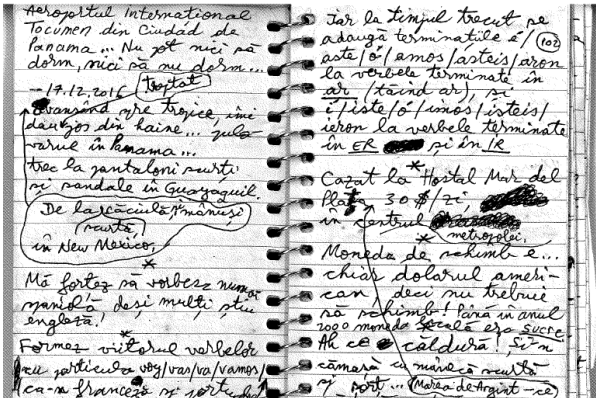 Aeroportul International
Tocumen din Ciudad de
Panama... Nu pot nici să
dorm, nici să nu dorm...
-- 17.12.2016 (trojtat)
avansînd spre tropice, îmi
dau jos din haine... pulo-
varul în Panama...
trec la pantaloni scurti
și sandale în Guayaquil.
De la căciulă, mănuși
scurtă,
în New Mexico,
*
Mă forțez să vorbesc numai
spaniolă, deși mulți știu
engleză!
*
Formez viitorul verbelor
cu particula voy/vas/va/vamos/
(ca-n franceză și
Iar la timpul trecut se
adaugă terminațiile é/ (102)
aste/ó/amos/ásteis/aron
la verbele terminate în
ar (tăind ar), și
í/iste/ó/imos/isteis/
ieron la verbele terminate
în ER și în IR
*
Cazat la Hostal Mar del
Plata, 30 $/zi,
în centrul
metropolei.
*
Moneda de schimb e...
chiar dolarul ameri-
can, deci nu trebuie
să schimb! Până în anul
2000 moneda locală era SUCRE.
Ah ce căldură! Și-n
cămară cu manecă scurtă
și șort... (Marea de Argint-ce)